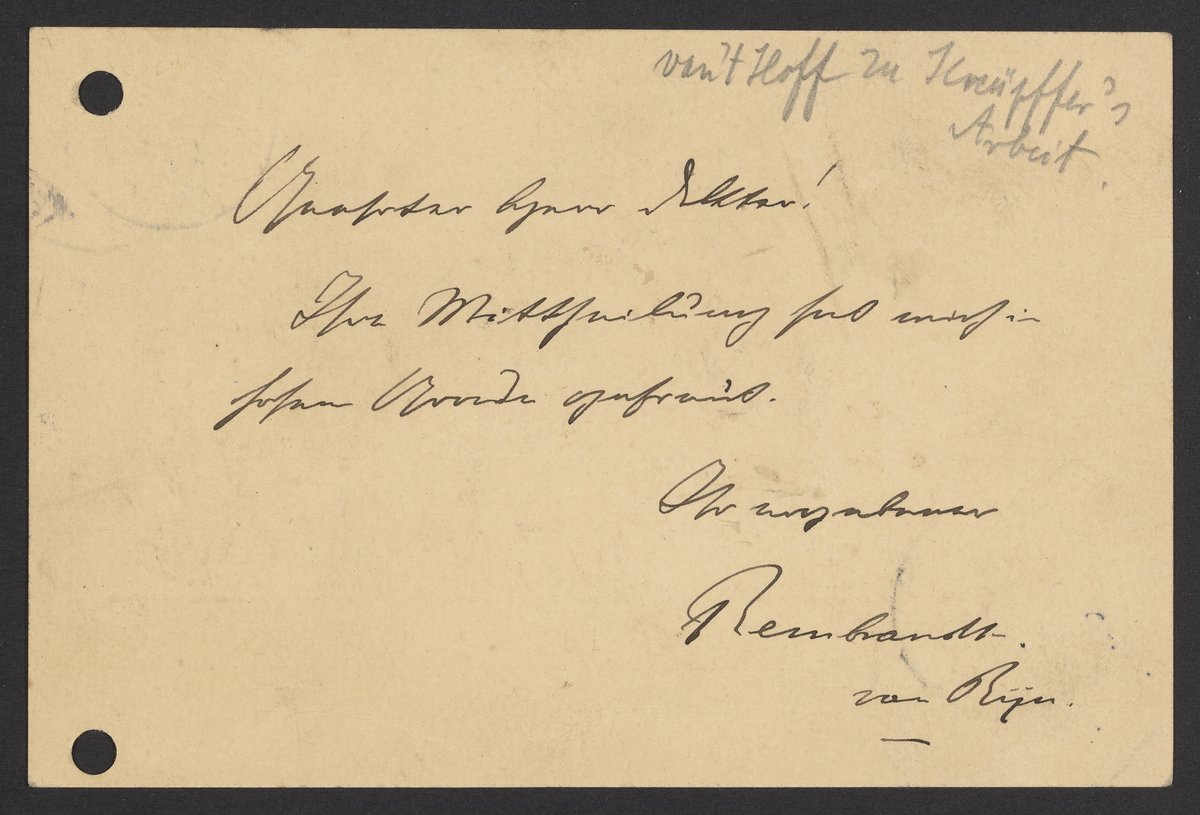 van't Hoff zu Kreüpffer's
Arbeit.
Geehrter Herr Doktor!
Ihre Mittheilung hat mich in
hohem Grade gefreut.
Ihr ergebener
Rembrandt.
van Rijn.